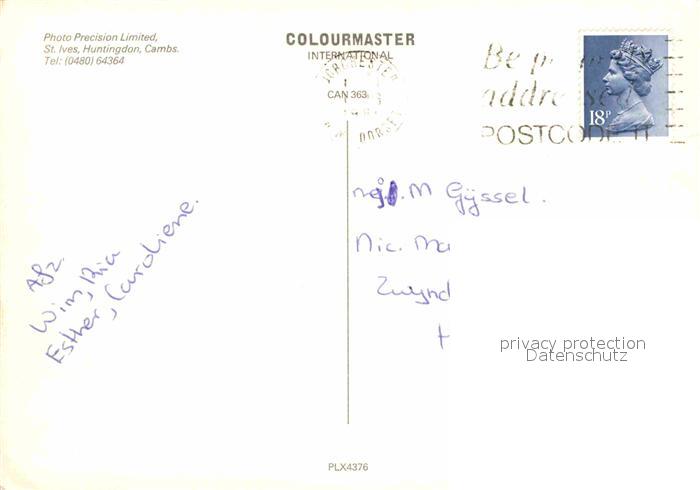 Photo Precision Limited,
St. Ives, Huntingdon, Cambs.
Tel: (0480) 64364
COLOURMASTER
INTERNATIONAL
CAN 363
DORCHESTER
DORSET
Be
addressed
POSTCODE IT
18P
mej. M Gÿssel.
Nic. Ma
Zwynd
Afz.
Wim, Ria
Esther, Caroliene.
privacy protection
Datenschutz
PLX4376